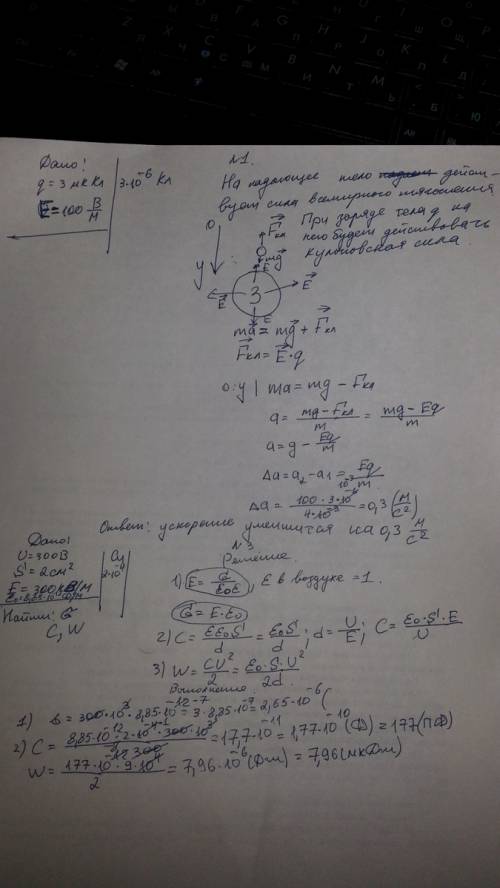 Дано!
q = 3 мкКл | 3·10⁻⁶ Кл
E = 100 В/м
№1.
На падающее тело действ-
вует сила всемирного тяготения
При заряде тела q на
него будет действовать
кулоновская сила.
O
y
F⃗кл
mg⃗
E⃗
E⃗
E
E
З
ma⃗ = mg⃗ + F⃗кл
F⃗кл = E⃗·q
o:y | ma = mg − Fкл
a = (mg − Fкл)/m = (mg − Eq)/m
a = g − Eq/m
Δa = a₂ − a₁ = Eq/m
Δa = (100·3·10⁻⁶)/(10⁻³) = 0,3 (м/с²)
Ответ: ускорение уменьшится на 0,3 м/с²
Дано!
U = 300В
S = 2см² | 2·10⁻⁴
E = 300кВ/м
Найти: σ
C, W
СИ
№3
Решение.
1) E = σ/ε₀ε, ε в воздухе = 1.
σ = E·ε₀
2) C = εε₀S/d = ε₀S/d; d = U/E; C = ε₀·S·E/U
3) W = CU²/2 = ε₀·S·U²/2d.
Вычисление.
1) σ = 300·10³·8,85·10⁻¹² = 3·8,85·10⁻⁷ = 2,65·10⁻⁶ (
2) C = (8,85·10⁻¹²·2·10⁻⁴·300·10³)/300 = 17,7·10⁻¹¹ = 1,77·10⁻¹⁰ (Ф) = 177 (пФ)
W = (177·10⁻¹²·9·10⁴)/2 = 7,96·10⁻⁶ (Дж) = 7,96 (мкДж)